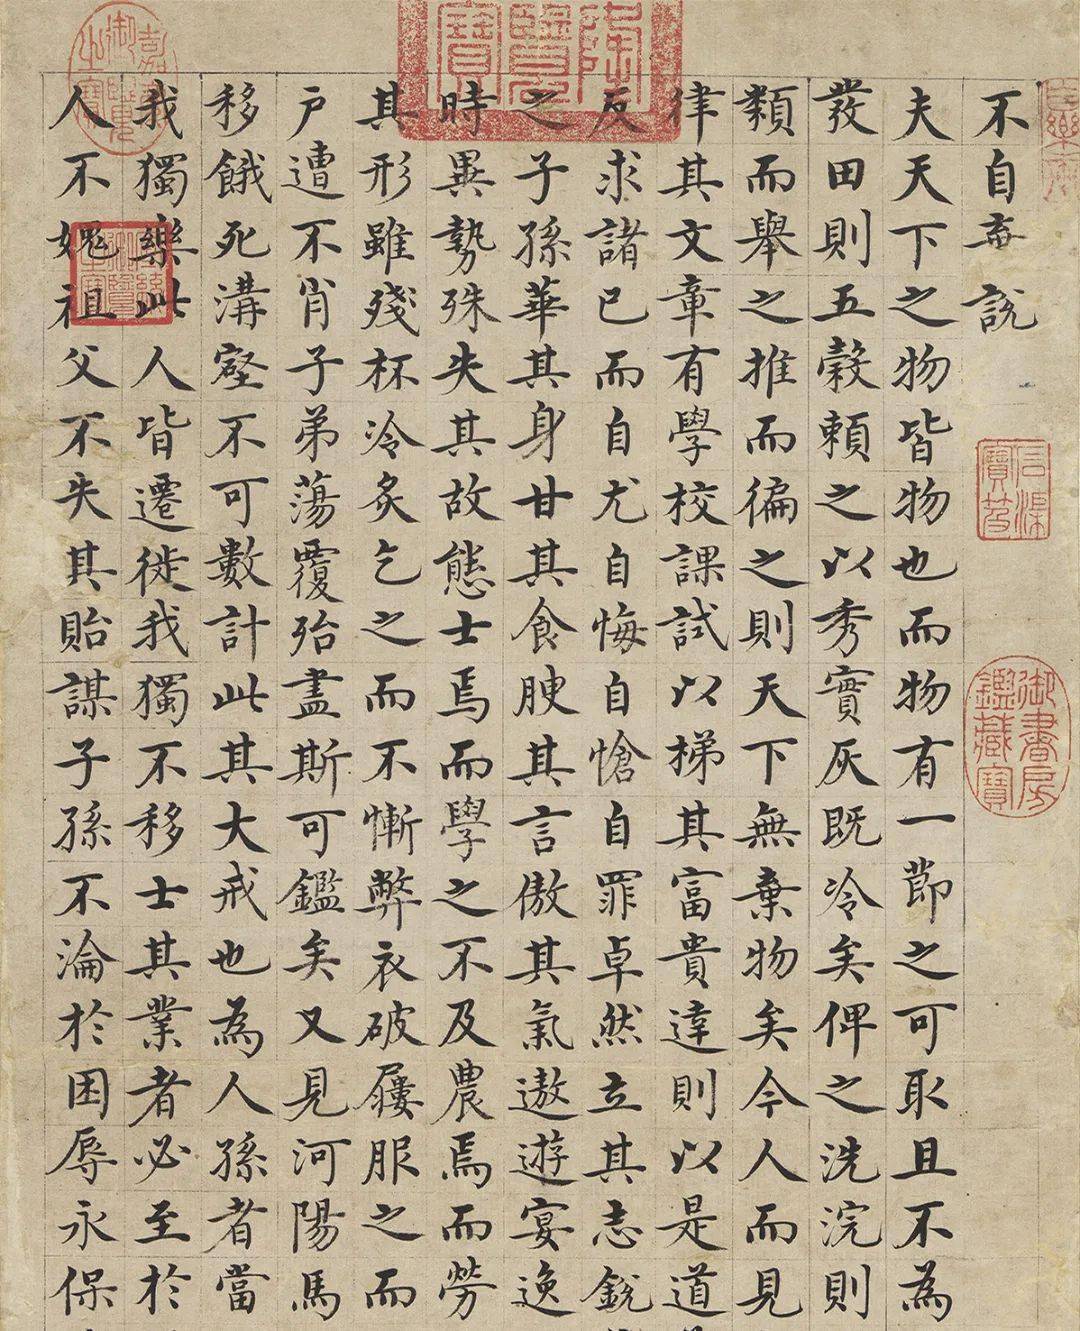 不自棄說
夫天下之物皆物也而物有一節之可取且不為
發田則五穀賴之以秀實灰既冷矣俾之洗浣則
類而舉之推而徧之則天下無棄物矣今人而見
律其文章有學校課試以梯其富貴達則以是道
反求諸己而自尤自悔自愴自罪卓然立其志銳
之子孫華其身甘其食腴其言傲其氣遨遊宴逸
時異勢殊失其故態士焉而學之不及農焉而勞
其形雖殘杯冷炙乞之而不慚弊衣破屨服之而
戶遭不肖子弟蕩覆殆盡斯可鑑矣又見河陽馬
移餓死溝壑不可數計此其大戒也為人孫者當
我獨樂此人皆遷徙我獨不移士其業者必至於
人不媿祖父不失其貽謀子孫不淪於困辱永保
御書房
鑑藏寶